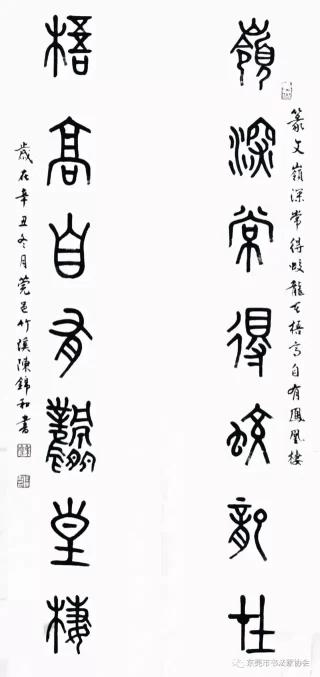 嶺深常得蛟龍在
篆文嶺深常得蛟龍在梧高自有鳳凰棲
梧高自有鳳凰棲
歲在辛丑冬月莞邑竹溪陳錦和書
东莞市书法家协会